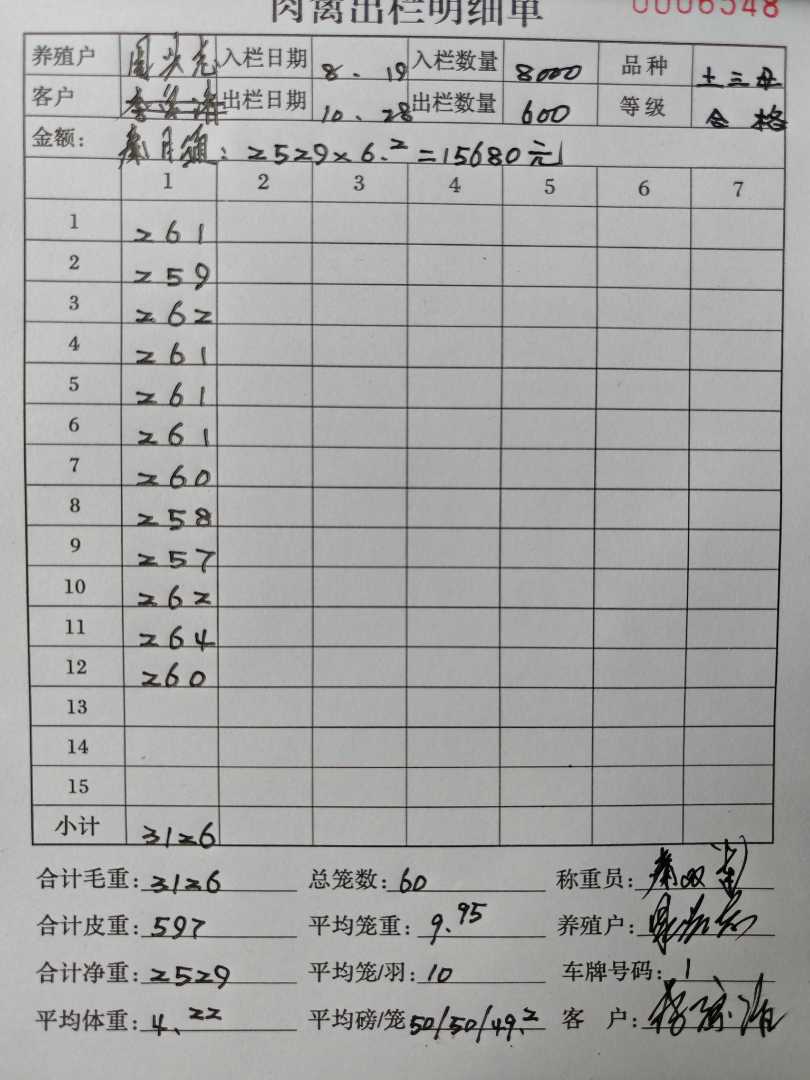 肉禽出栏明细单 0006548
养殖户 入栏日期 8.19 入栏数量 8000 品种 土三母
客户 出栏日期 10.28 出栏数量 600 等级 合格
金额: 秦月强: 2529×6.2=15680元
1 2 3 4 5 6 7
1 261
2 259
3 262
4 261
5 261
6 261
7 260
8 258
9 257
10 262
11 264
12 260
13
14
15
小计 3126
合计毛重: 3126 总笼数: 60 称重员:
合计皮重: 597 平均笼重: 9.95 养殖户:
合计净重: 2529 平均笼/羽: 10 车牌号码: 1
平均体重: 4.22 平均磅/笼 50/50/49.2 客 户: